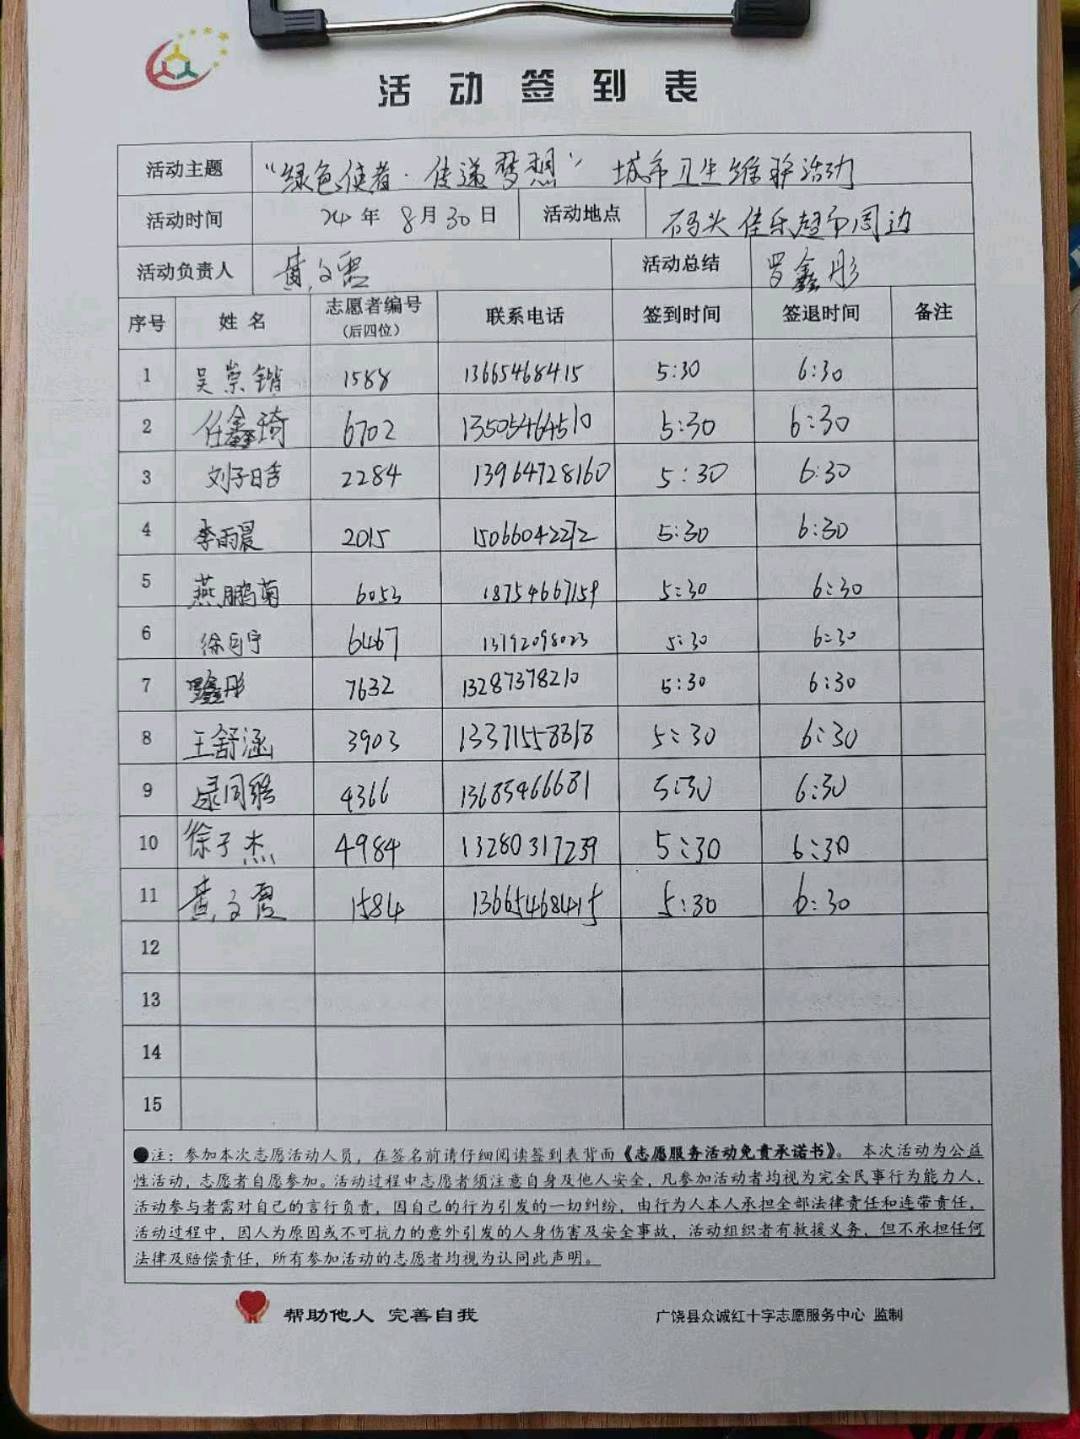 活动签到表
活动主题 “绿色使者·传递梦想” 城市卫生维护活动
活动时间 24年 8月30日 活动地点 码头佳乐超市周边
活动负责人 黄文霞 活动总结 罗鑫彤
序号 姓名 志愿者编号(后四位) 联系电话 签到时间 签退时间 备注
1 吴崇锴 1588 13665468415 5:30 6:30
2 任鑫琦 6702 13505464510 5:30 6:30
3 刘子晗 2284 13964728160 5:30 6:30
4 李雨晨 2015 15066042272 5:30 6:30
5 燕鹏菊 6053 18754667159 5:30 6:30
6 徐自宇 6467 13792098023 5:30 6:30
7 罗鑫彤 7632 13287378210 5:30 6:30
8 王舒涵 3903 13371558818 5:30 6:30
9 4366 13685466681 5:30 6:30
10 徐子杰 4984 13280317239 5:30 6:30
11 黄文霞 1584 13665468415 5:30 6:30
12
13
14
15
●注：参加本次志愿活动人员，在签名前请仔细阅读签到表背面《志愿服务活动免责承诺书》。 本次活动为公益
性活动，志愿者自愿参加。活动过程中志愿者须注意自身及他人安全，凡参加活动者均视为完全民事行为能力人，
活动参与者需对自己的言行负责，因自己的行为引发的一切纠纷，由行为人本人承担全部法律责任和连带责任，
活动过程中，因人为原因或不可抗力的意外引发的人身伤害及安全事故，活动组织者有救援义务，但不承担任何
法律及赔偿责任，所有参加活动的志愿者均视为认同此声明。
帮助他人 完善自我 广饶县众诚红十字志愿服务中心 监制